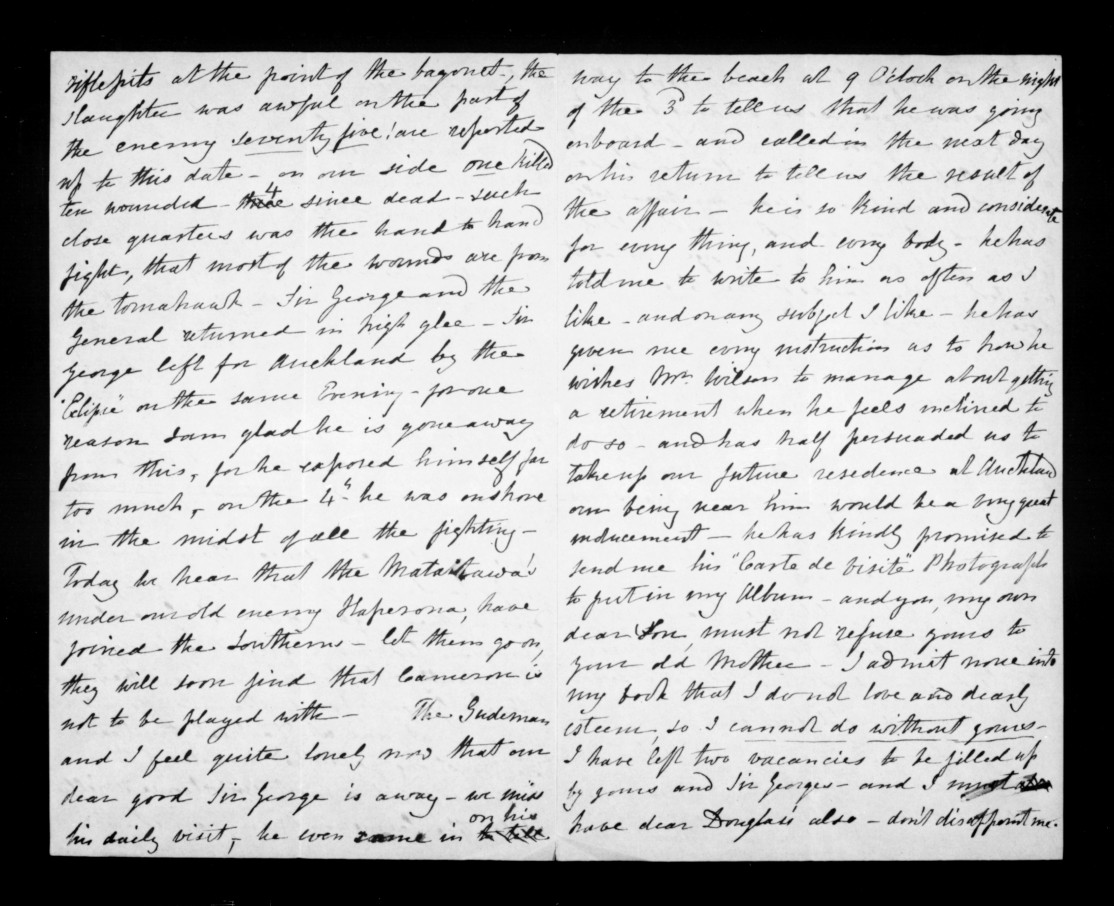 riflepits at the point of the bayonet, the
slaughter was awful on the part of
the enemy seventy five! are reported
up to this date - on our side one killed
ten wounded - 4 since dead - such
close quarters was the hand to hand
fight, that most of the wounds are from
the tomahawk - Sir George and the
General returned in high glee - Sir
George left for Auckland by the
"Eclipse" on the same Evening - for one
reason I am glad he is gone away
from this, for he exposed himself far
too much, - on the 4th he was on shore
in the midst of all the fighting -
Today we hear that the Mataitawa's
under our old enemy Hapurona, have
joined the Southerns - let them go on,
they will soon find that Cameron is
not to be played with - The Gudeman
and I feel quite lonely now that our
dear good Sir George is away - we miss
his daily visit, - he even came in on his
way to the beach at 9 O'clock on the night
of the 3d to tell us that he was going
onboard - and called in the next day
on his return to tell us the result of
the affair - he is so kind and considerate
for every thing, and every body - he has
told me to write to him as often as I
like - and on any subject I like - he has
given me every instruction as to how he
wishes Mr. Wilson to manage about getting
a retirement when he feels inclined to
do so - and has half persuaded us to
take up our future residence at Auckland
our being near him would be a very great
inducement - he has kindly promised to
send me his "Carte de Visite" Photograph
to put in my Album - and you, my own
dear Son, must not refuse yours to
your old Mother - I admit none into
my book that I do not love and dearly
esteem, so I cannot do without yours -
I have left two vacancies to be filled up
by yours and Sir Georges - and I must
have dear Douglas's also - don't disappoint me.